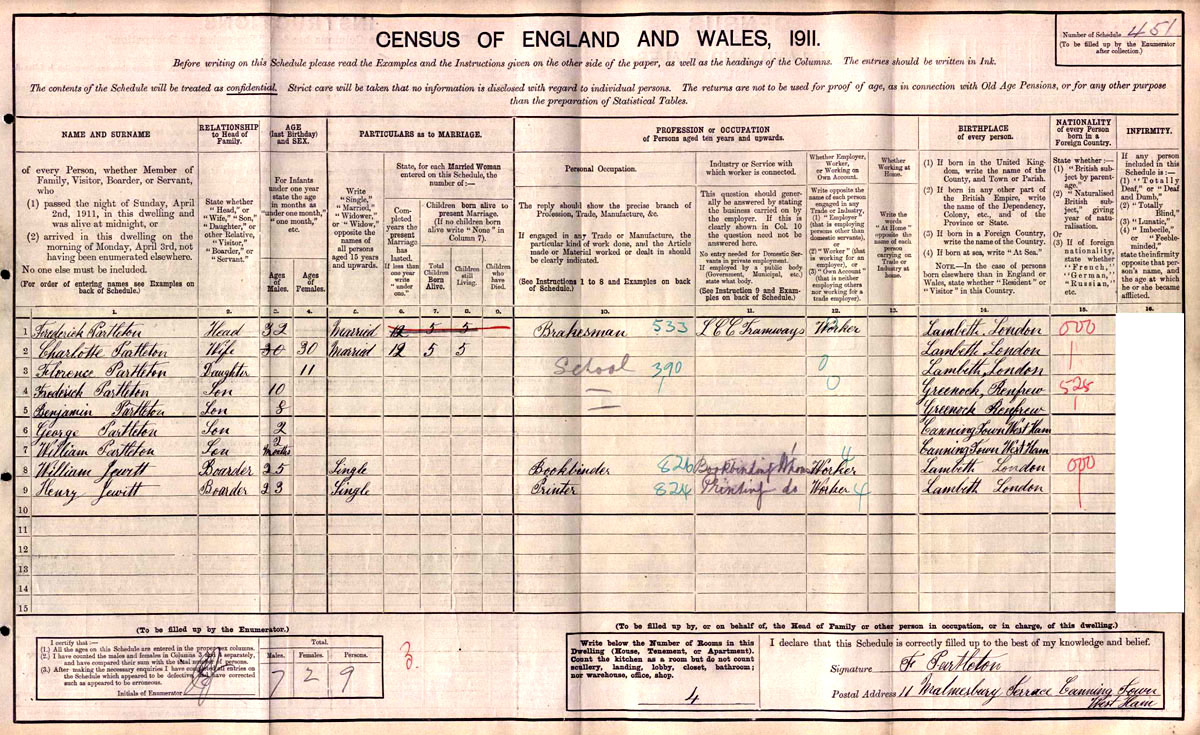 CENSUS OF ENGLAND AND WALES, 1911.
Number of Schedule 451
(To be filled up by the Enumerator
after collection.)
Before writing on this Schedule please read the Examples and the Instructions given on the other side of the paper, as well as the headings of the Columns. The entries should be written in Ink.
The contents of the Schedule will be treated as confidential. Strict care will be taken that no information is disclosed with regard to individual persons. The returns are not to be used for proof of age, as in connection with Old Age Pensions, or for any other purpose
than the preparation of Statistical Tables.
NAME AND SURNAME
of every Person, whether Member of
Family, Visitor, Boarder, or Servant,
who
(1) passed the night of Sunday, April
2nd, 1911, in this dwelling and
was alive at midnight, or
(2) arrived in this dwelling on the
morning of Monday, April 3rd, not
having been enumerated elsewhere.
No one else must be included.
(For order of entering names see Examples on
back of Schedule.)
1.
RELATIONSHIP
to Head of
Family.
State whether
"Head," or
"Wife," "Son,"
"Daughter," or
other Relative,
"Visitor,"
"Boarder," or
"Servant."
2.
AGE
(last Birthday)
and SEX.
For Infants
under one year
state the age
in months as
"under one month,"
"one month,"
etc.
Ages
of
Males.
3.
Ages
of
Females.
4.
PARTICULARS as to MARRIAGE.
Write
"Single,"
"Married,"
"Widower,"
or "Widow,"
opposite the
names of
all persons
aged 15 years
and upwards.
5.
State, for each Married Woman
entered on this Schedule, the
number of:—
Completed
years the
present
Marriage
has
lasted.
If less than
one year
write
"under
one."
6.
Children born alive to
present Marriage.
(If no children born
alive write "None" in
Column 7).
Total
Children
Born
Alive.
7.
Children
still
Living.
8.
Children
who
have
Died.
9.
PROFESSION or OCCUPATION
of Persons aged ten years and upwards.
Personal Occupation.
The reply should show the precise branch of
Profession, Trade, Manufacture, &c.
If engaged in any Trade or Manufacture, the
particular kind of work done, and the Article
made or Material worked or dealt in should
be clearly indicated.
(See Instructions 1 to 8 and Examples on back
of Schedule.)
10.
Industry or Service with
which worker is connected.
This question should generally
be answered by stating
the business carried on by
the employer. If this is
clearly shown in Col. 10
the question need not be
answered here.
No entry needed for Domestic Servants
in private employment.
If employed by a public body
(Government, Municipal, etc.)
state what body.
(See Instruction 9 and Examples
on back of Schedule.)
11.
Whether Employer,
Worker,
or Working on
Own Account.
Write opposite the
name of each person
engaged in any
Trade or Industry,
(1) "Employer"
(that is employing
persons other than
domestic servants),
or
(2) "Worker" (that
is working for an
employer), or
(3) "Own Account"
(that is neither
employing others
nor working for a
trade employer).
12.
Whether
Working at
Home.
Write the
words
"At Home"
opposite the
name of each
person
carrying on
Trade or
Industry at
home.
13.
BIRTHPLACE
of every person.
(1) If born in the United Kingdom,
write the name of the
County, and Town or Parish.
(2) If born in any other part of
the British Empire, write
the name of the Dependency,
Colony, etc., and of the
Province or State.
(3) If born in a Foreign Country,
write the name of the Country.
(4) If born at sea, write "At Sea."
NOTE.—In the case of persons
born elsewhere than in England or
Wales, state whether "Resident" or
"Visitor" in this Country.
14.
NATIONALITY
of every Person
born in a
Foreign Country.
State whether:—
(1) "British subject
by parentage."
(2) "Naturalised
British
subject,"
giving
year of
naturalisation.
Or
(3) If of foreign
nationality,
state whether
"French,"
"German,"
"Russian,"
etc.
15.
INFIRMITY.
If any person
included in this
Schedule is:—
(1) "Totally
Deaf," or "Deaf
and Dumb,"
(2) "Totally
Blind,"
(3) "Lunatic,"
(4) "Imbecile,"
or "Feeble-minded,"
state the infirmity
opposite that person's
name, and
the age at which
he or she became
afflicted.
16.
1 Frederick Partleton Head 32 Married 12 5 5 Brakesman 533 L.C.C Tramways Worker Lambeth London 000
2 Charlotte Partleton Wife 30 30 Married 12 5 5 Lambeth London
3 Florence Partleton Daughter 11 School 390 0 Lambeth London
4 Frederick Partleton Son 10 — 0 Greenock, Renfrew 525
5 Benjamin Partleton Son 8 — Greenock Renfrew
6 George Partleton Son 2 Canning Town West Ham
7 William Partleton Son 2 months Canning Town West Ham
8 William Jewitt Boarder 25 Single Bookbinder 826 Bookbinding Worker 4 Lambeth London 000
9 Henry Jewitt Boarder 23 Single Printer 824 Printing do Worker 4 Lambeth London
10
11
12
13
14
15
(To be filled up by the Enumerator.)
I certify that:—
(1.) All the ages on this Schedule are entered in the proper sex columns.
(2.) I have counted the males and females in Columns 3 and 4 separately,
and have compared their sum with the total number of persons.
(3.) After making the necessary enquiries I have completed all entries on
the Schedule which appeared to be defective, and have corrected
such as appeared to be erroneous.
Initials of Enumerator
Total.
Males. Females. Persons.
7 2 9
3.
(To be filled up by, or on behalf of, the Head of Family or other person in occupation, or in charge, of this dwelling.)
Write below the Number of Rooms in this
Dwelling (House, Tenement, or Apartment).
Count the kitchen as a room but do not count
scullery, landing, lobby, closet, bathroom;
nor warehouse, office, shop.
4
I declare that this Schedule is correctly filled up to the best of my knowledge and belief.
Signature F Partleton
Postal Address 11 Malmesbury Terrace Canning Town
West Ham